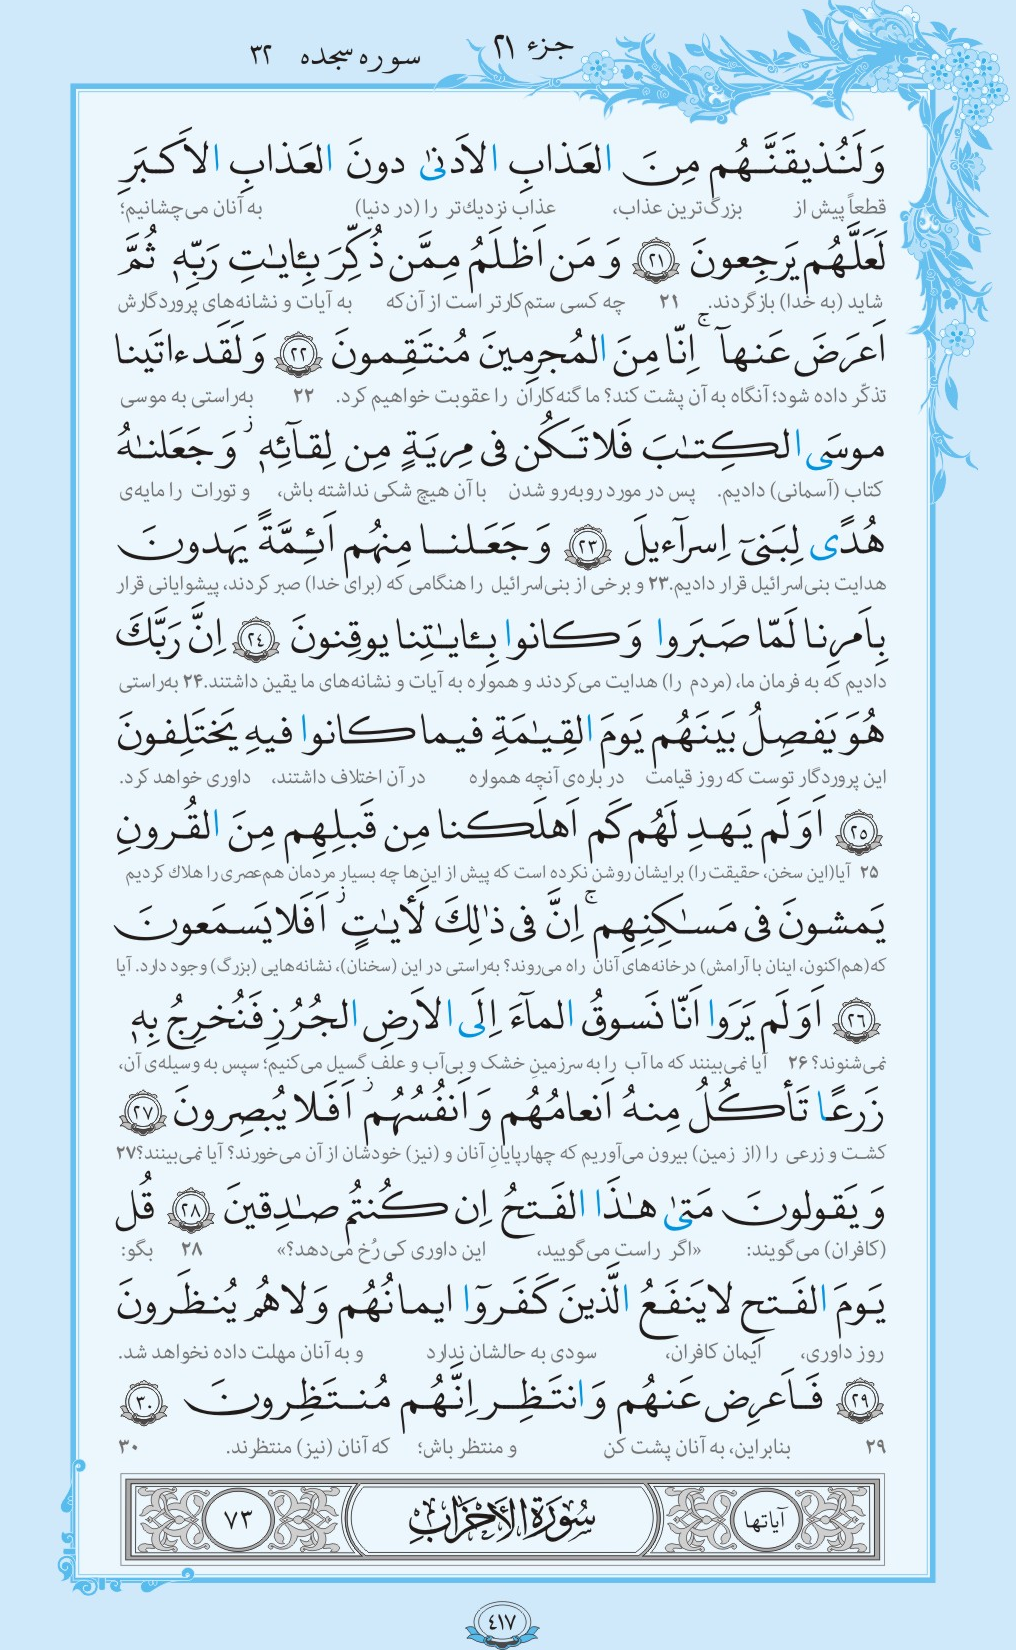 جزء ۲۱
سوره سجده ۳۲
وَ لَنُذيقَنَّهُم مِنَ العَذابِ الاَدنىٰ دونَ العَذابِ الاَكبَرِ
قطعاً پیش از بزرگ‌ترین عذاب، عذاب نزدیك‌تر را (در دنیا) به آنان می‌چشانیم؛
لَعَلَّهُم يَرجِعونَ ﴿٢١﴾ وَ مَن اَظلَمُ مِمَّن ذُكِّرَ بِـٔاياتِ رَبِّهٖ ثُمَّ
شاید (به خدا) بازگردند. ۲۱ چه کسی ستم‌کارتر است از آن‌که به آیات و نشانه‌های پروردگارش
اَعرَضَ عَنهآ ۚ اِنّا مِنَ المُجرِمينَ مُنتَقِمونَ ﴿٢٢﴾ وَ لَقَد ءاتَينا
تذکّر داده شود؛ آنگاه به آن پشت کند؟ ما گنه‌کاران را عقوبت خواهیم کرد. ۲۲ به‌راستی به موسی
موسَى الكِتٰبَ فَلا تَكُن فى مِريَةٍ مِن لِقآئِهٖ ز وَ جَعَلنٰهُ
کتاب (آسمانی) دادیم. پس در مورد روبه‌رو شدن با آن هیچ شکی نداشته باش، و تورات را مایه‌ی
هُدًى لِبَنىٓ اِسرآءيلَ ﴿٢٣﴾ وَ جَعَلنا مِنهُم اَئِمَّةً يَهدونَ
هدایت بنی‌اسرائیل قرار دادیم.۲۳ و برخی از بنی‌اسرائیل را هنگامی که (برای خدا) صبر کردند، پیشوایانی قرار
بِاَمرِنا لَمّا صَبَروا وَ كانوا بِـٔايٰتِنا يوقِنونَ ﴿٢٤﴾ اِنَّ رَبَّكَ
دادیم که به فرمان ما، (مردم را) هدایت می‌کردند و همواره به آیات و نشانه‌های ما یقین داشتند.۲۴ به‌راستی
هُوَ يَفصِلُ بَينَهُم يَومَ القِيٰمَةِ فيما كانوا فيهِ يَختَلِفونَ
این پروردگار توست که روز قیامت در باره‌ی آنچه همواره در آن اختلاف داشتند، داوری خواهد کرد.
﴿٢٥﴾ اَوَ لَم يَهدِ لَهُم كَم اَهلَكنا مِن قَبلِهِم مِنَ القُرونِ
۲۵ آیا(این سخن، حقیقت را) برایشان روشن نکرده است که پیش از این‌ها چه بسیار مردمان هم‌عصری را هلاك کردیم
يَمشونَ فى مَسٰكِنِهِم ۚ اِنَّ فى ذٰلِكَ لَأياتٍ ز اَفَلا يَسمَعونَ
که(هم‌اکنون، اینان با آرامش) درخانه‌های آنان راه می‌روند؟ به‌راستی در این (سخنان)، نشانه‌هایی (بزرگ) وجود دارد. آیا
﴿٢٦﴾ اَوَ لَم يَرَوا اَنّا نَسوقُ المآءَ اِلَى الاَرضِ الجُرُزِ فَنُخرِجُ بِهٖ
نمی‌شنوند؟ ۲۶ آیا نمی‌بینند که ما آب را به سرزمین خشک و بی‌آب و علف گسیل می‌کنیم؛ سپس به وسیله‌ی آن،
زَرعًا تَأكُلُ مِنهُ اَنعامُهُم وَ اَنفُسُهُم ز اَفَلا يُبصِرونَ ﴿٢٧﴾
کشت و زرعی را (از زمین) بیرون می‌آوریم که چهارپایانِ آنان و (نیز) خودشان از آن می‌خورند؟ آیا نمی‌بینند؟۲۷
وَ يَقولونَ مَتىٰ هٰذَا الفَتحُ اِن كُنتُم صادِقينَ ﴿٢٨﴾ قُل
(کافران) می‌گویند: «اگر راست می‌گویید، این داوری کی رُخ می‌دهد؟» ۲۸ بگو:
يَومَ الفَتحِ لا يَنفَعُ الَّذينَ كَفَروٓا ايمانُهُم وَ لا هُم يُنظَرونَ
روز داوری، ایمان کافران، سودی به حالشان ندارد و به آنان مهلت داده نخواهد شد.
﴿٢٩﴾ فَاَعرِض عَنهُم وَ انتَظِر اِنَّهُم مُنتَظِرونَ ﴿٣٠﴾
۲۹ بنابراین، به آنان پشت کن و منتظر باش؛ که آنان (نیز) منتظرند. ۳۰
آیاتها سُورَةُ الأَحزابِ ٧٣
٤١٧